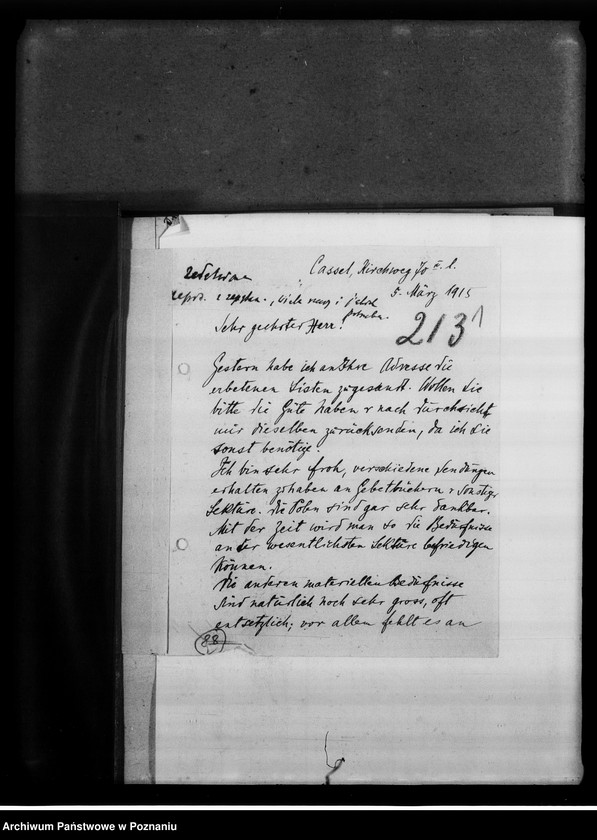 Cassel, Kirchweg 70 II. l.
5. März 1915
213
Sehr geehrter Herr!
Gestern habe ich an Ihre Adresse die
erbetenen Listen zugesandt. Wollen Sie
bitte die Güte haben & nach Durchsicht
mir dieselben zurücksenden, da ich sie
sonst benötige.
Ich bin sehr froh, verschiedene Sendungen
erhalten zu haben an Gebetbüchern & sonstiger
Lektüre. Die Polen sind gar sehr dankbar.
Mit der Zeit wird man so die Bedürfnisse
an der wesentlichsten Lektüre befriedigen
können.
Die anderen materiellen Bedürfnisse
sind natürlich noch sehr gross, oft
entsetzlich; vor allem fehlt es an
88
Archiwum Państwowe w Poznaniu